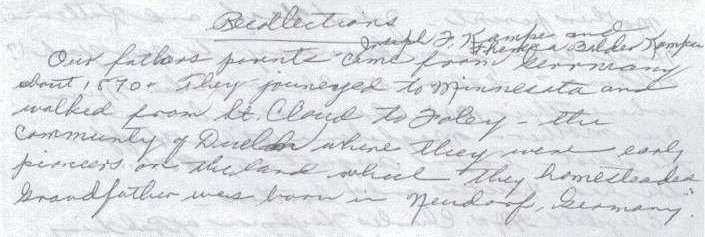 Recollections
Joseph F. Kampa and
Theresa Bilder Kampa
Our fathers parents came from Germany
about 1870. They journeyed to Minnesota and
walked from St. Cloud to Foley - the
community of Duelm where they were early
pioneers on the land which they homesteaded
Grandfather was born in Neudorf, Germany.